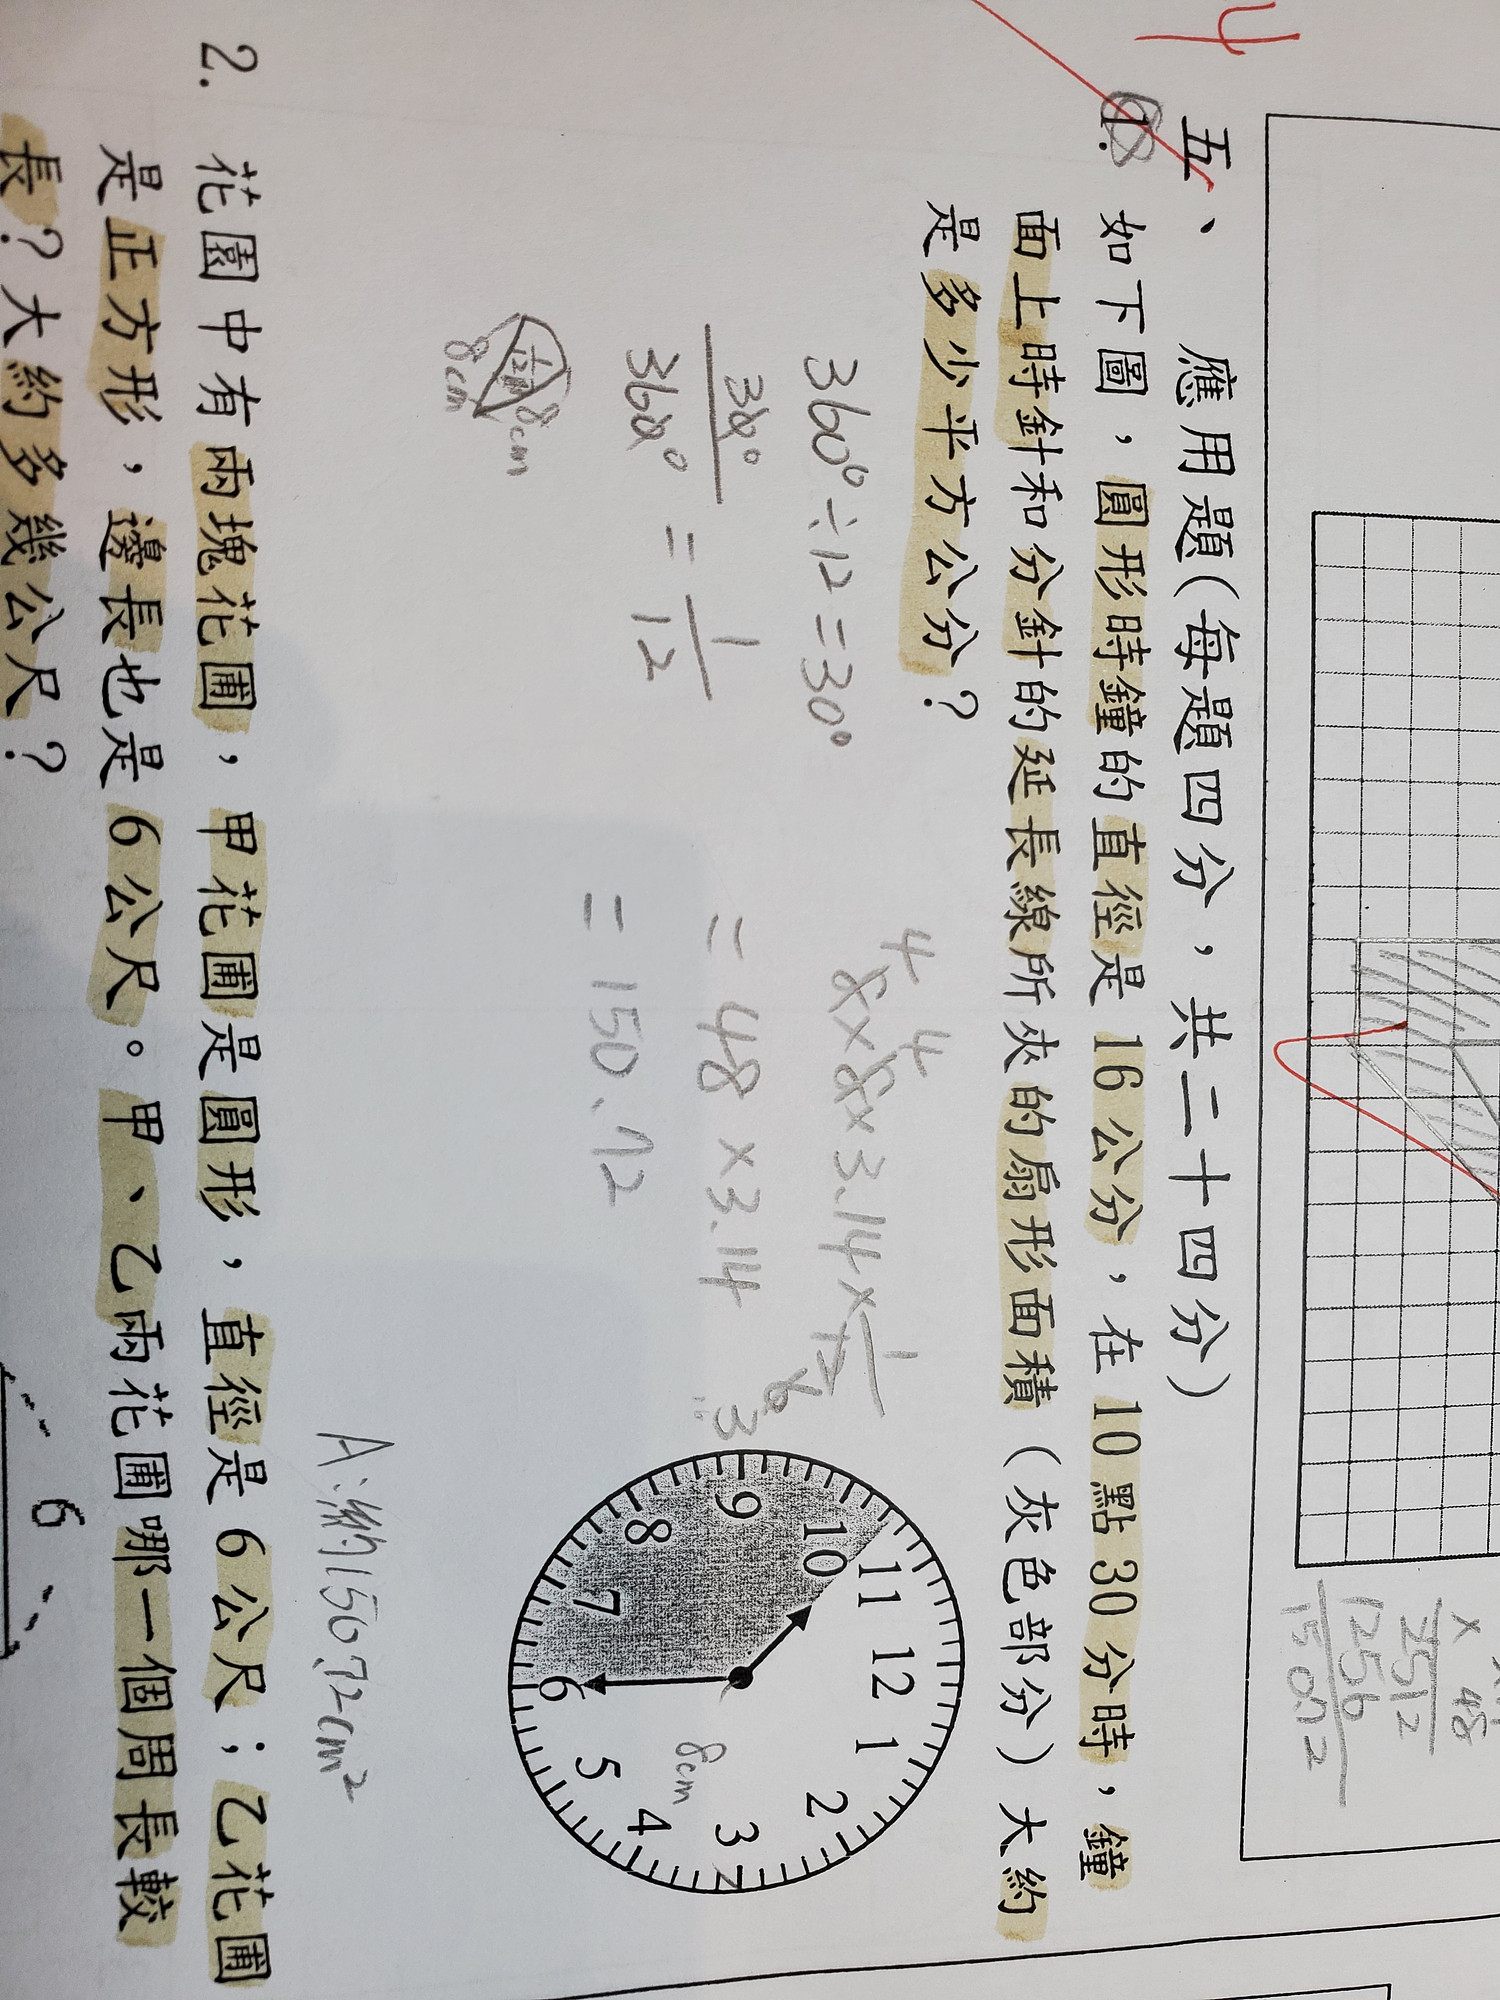 4
五、應用題(每題四分，共二十四分)
1. 如下圖，圓形時鐘的直徑是 16 公分，在 10 點 30 分時，鐘
面上時針和分針的延長線所夾的扇形面積（灰色部分）大約
是多少平方公分？
360°÷12=30°
30°/360° = 1/12
8cm
8cm
4 4
8×8×3.14×1/12
6
3
= 48×3.14
= 150.72
A:約150.72cm²
12
1
2
3
4
5
6
7
8
9
10
11
8cm
× 48
2512
1256
15072
2. 花園中有兩塊花圃，甲花圃是圓形，直徑是 6 公尺；乙花圃
是正方形，邊長也是 6 公尺。甲、乙兩花圃哪一個周長較
長？大約多幾公尺？
6